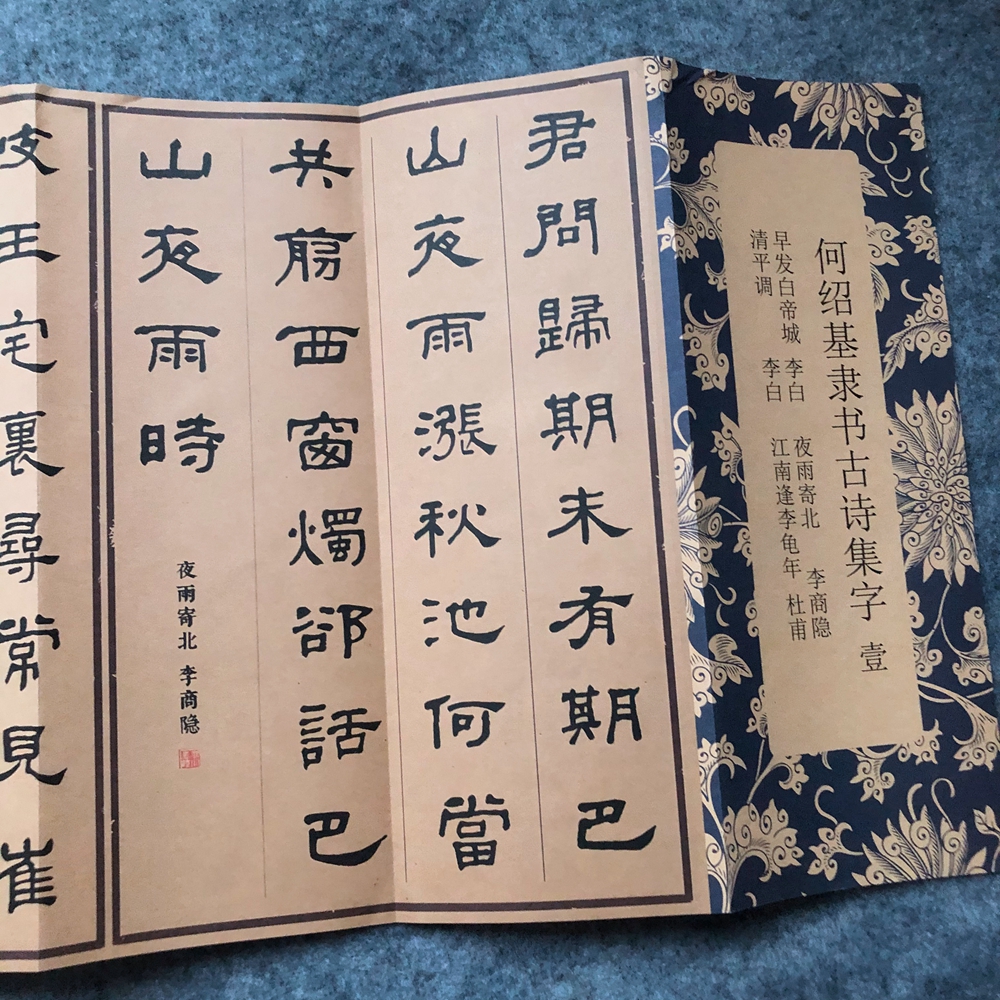 何绍基隶书古诗集字 壹
夜雨寄北 李商隐
早发白帝城 李白
江南逢李龟年 杜甫
清平调 李白
君問歸期未有期巴
山夜雨漲秋池何當
共剪西窗燭郤話巴
山夜雨時
夜雨寄北 李商隐
岐王宅裏尋常見崔